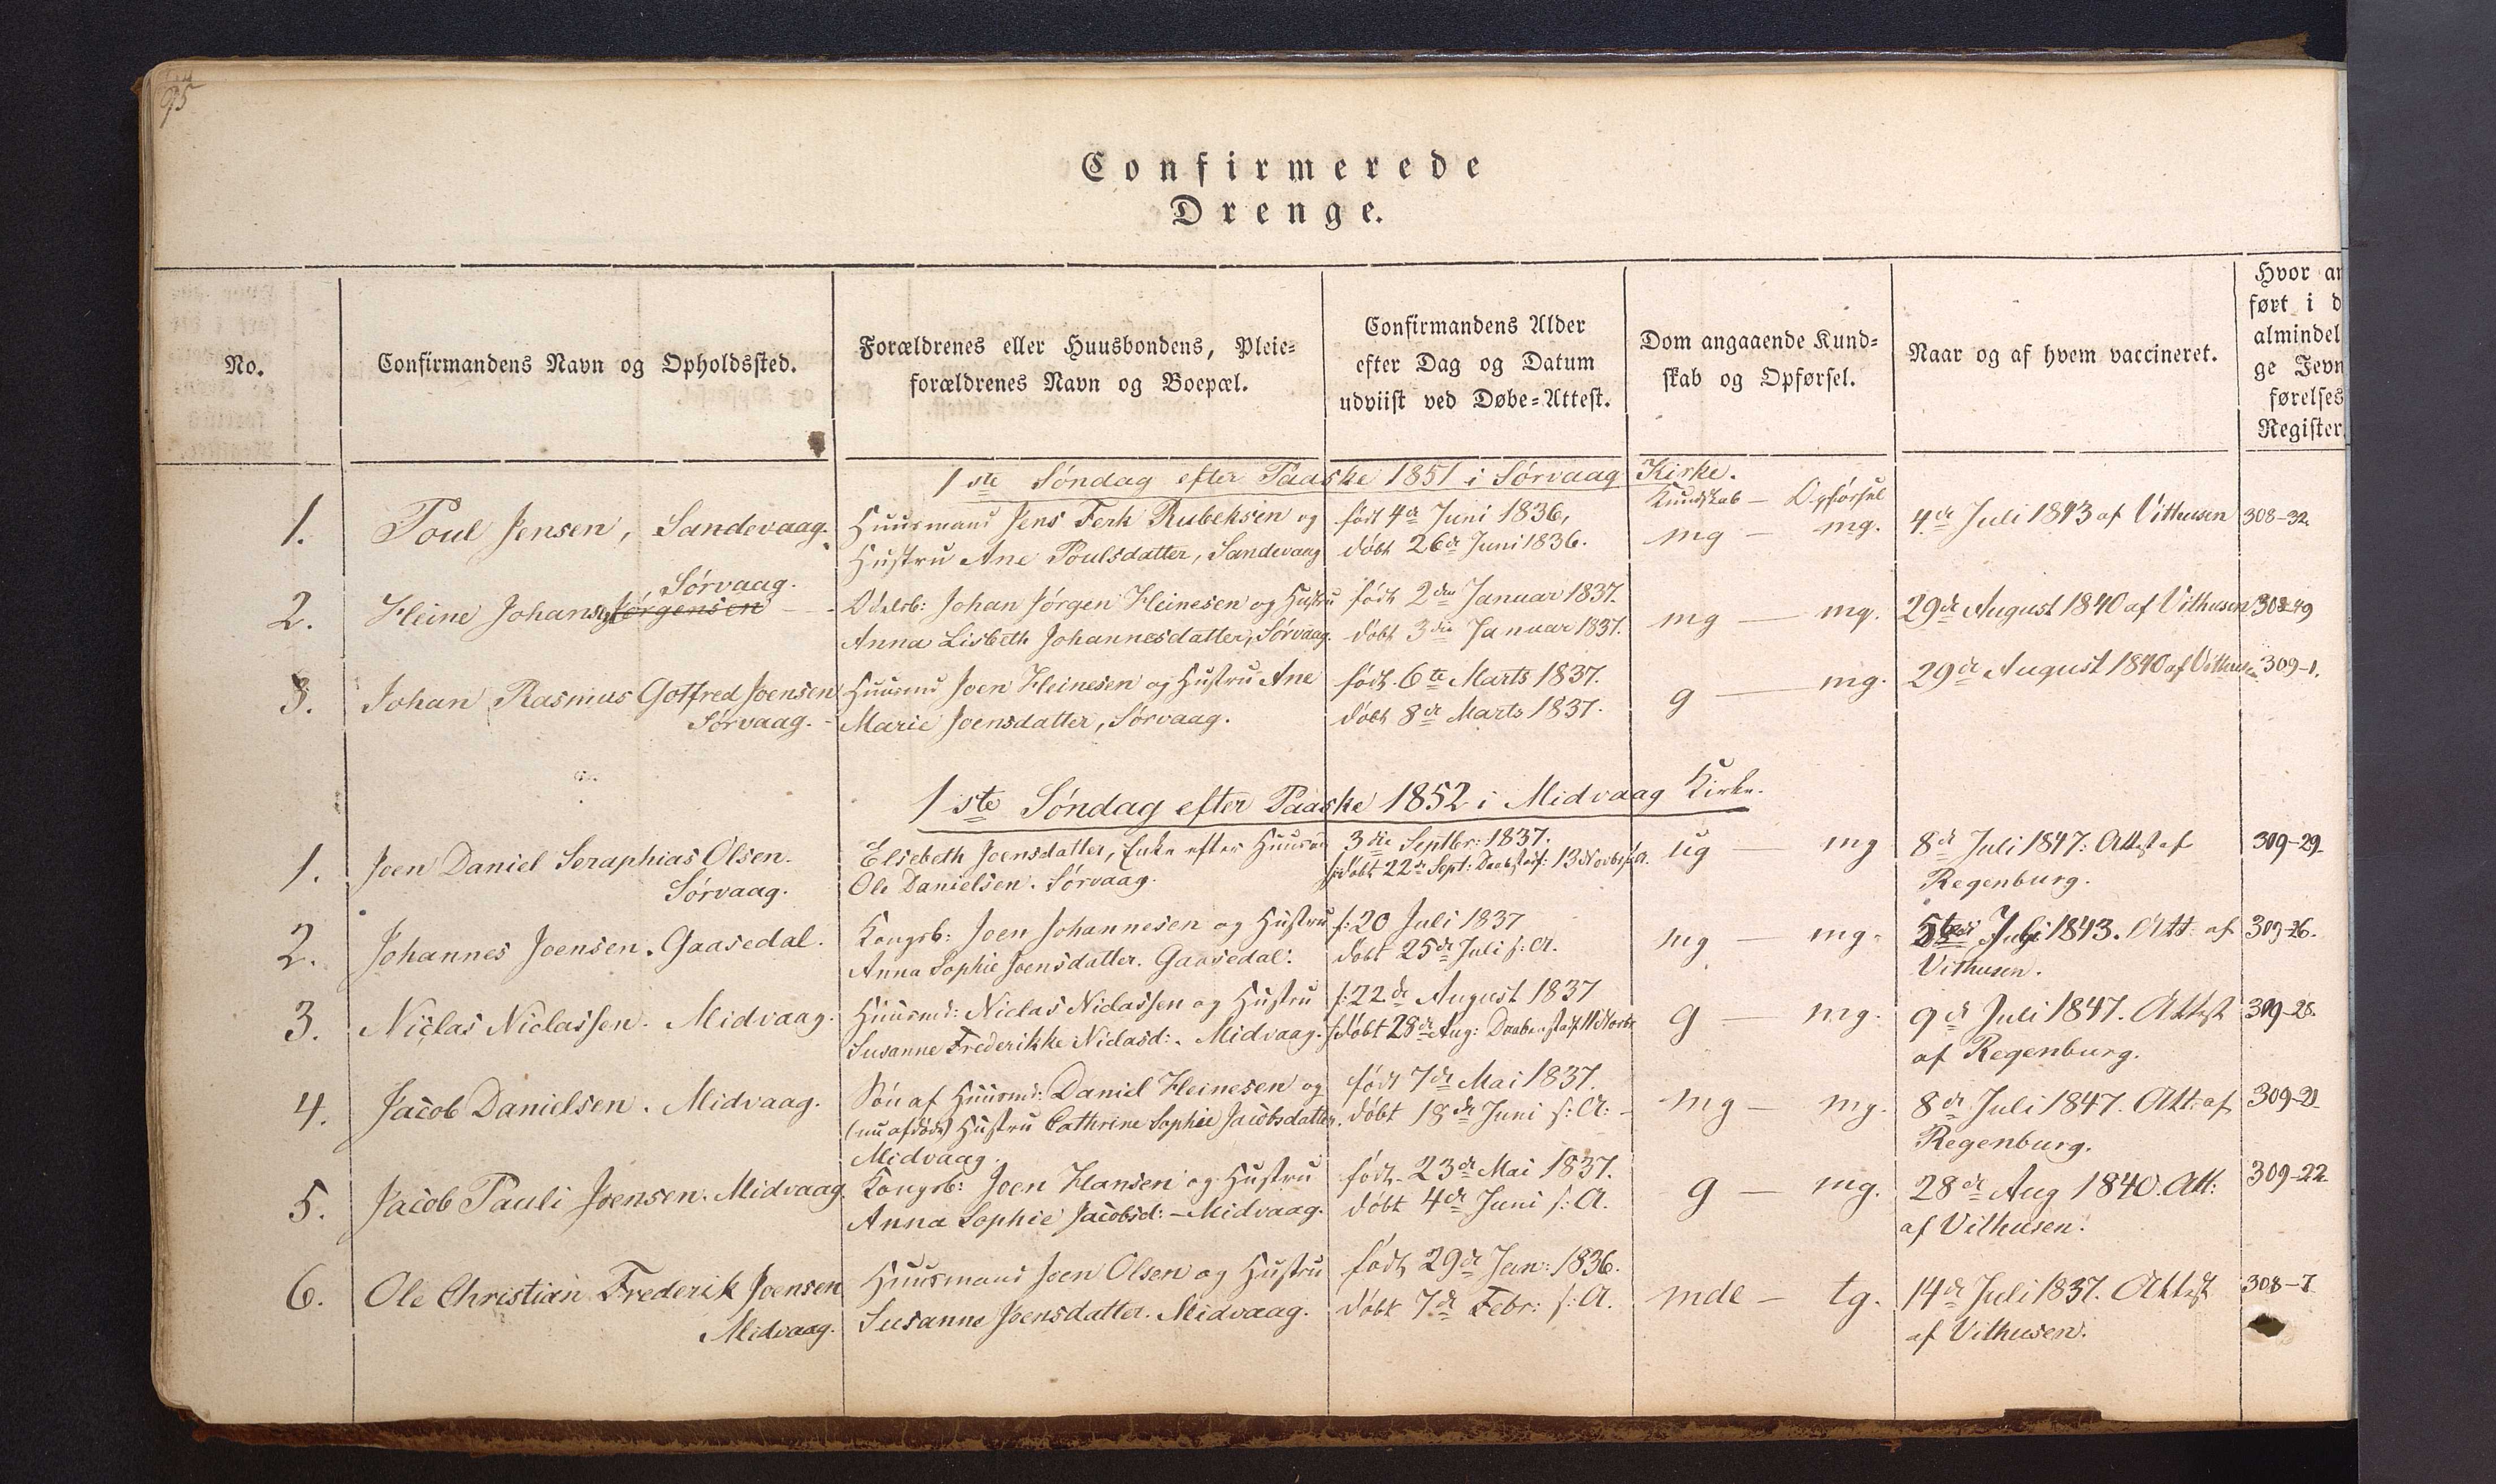 95
Confirmerede
Drenge.
No.
Confirmandens Navn og Opholdssted.
Forældrenes eller Huusbondens, Pleie=
forældrenes Navn og Boepæl.
Confirmandens Alder
efter Dag og Datum
udviist ved Døbe=Attest.
Dom angaaende Kund=
skab og Opførsel.
Naar og af hvem vaccineret.
Hvor an
ført i d
almindel
ge Jevn
førelses
Register.
1ste Søndag efter Paaske 1851 i Sørvaag Kirke.
Kundskab – Opførsel
1. Poul Jensen, Sandevaag.
Huusmand Jens Rubeksen og
Hustru Ane Poulsdatter, Sandevaag
født 4de Juni 1836,
døbt 26de Juni 1836.
mg – mg.
4de Juli 1843 af Vithusen
308–32.
Sørvaag.
2. Heine Johansen Jørgensen
Odelsb: Johan Jørgen Heinesen og Hustru
Anna Lisbeth Johannesdatter, Sørvaag.
født 2den Januar 1837.
døbt 3die Januar 1837.
mg – mg.
29de August 1840 af Vithusen
308–49
3. Johan Rasmus Gotfred Joensen
Sørvaag.
Huusmd Joen Heinesen og Hustru Ane
Marie Joensdatter, Sørvaag.
født 6te Marts 1837.
døbt 8de Marts 1837.
g – mg.
29de August 1840 af Vithusen
309–1.
1ste Søndag efter Paaske 1852 i Midvaag Kirke.
1. Joen Daniel Seraphias Olsen.
Sørvaag.
Elsebeth Joensdatter, Enke efter Huusmd
Ole Danielsen. Sørvaag.
3die Septbr: 1837.
døbt 22de Sept: Daabstilf: 13 Novbr s: A.
ug – mg
8de Juli 1847. Attest af
Regenburg.
309–29.
2. Johannes Joensen. Gaasedal.
Kongsb: Joen Johannesen og Hustru
Anna Sophie Joensdatter. Gaasedal.
f: 20 Juli 1837
døbt 25de Juli s: A.
mg – mg.
5te Juli 1843. Att: af
Vithusen.
309–26.
3. Niclas Niclassen. Midvaag.
Huusmd: Niclas Niclassen og Hustru
Susanne Frederikke Niclasd:. Midvaag.
f: 22de August 1837
døbt 28de Aug: 11 Novbr
g – mg.
9de Juli 1847. Attest
af Regenburg.
309–28.
4. Jacob Danielsen. Midvaag.
Søn af Huusmd: Daniel Heinesen og
(nu afdøde) Hustru Cathrine Sophie Jacobsdatter.
Midvaag.
født 7de Mai 1837.
døbt 18de Juni s: A:
mg – mg.
8de Juli 1847. Att: af
Regenburg.
309–21.
5. Jacob Pauli Joensen. Midvaag.
Kongsb: Joen Hansen og Hustru
Anna Sophie Jacobsd: – Midvaag.
født 23de Mai 1837.
døbt 4de Juni s: A.
g – mg.
28de Aug 1840. Att:
af Vithusen.
309–22.
6. Ole Christian Frederik Joensen
Midvaag.
Huusmand Joen Olsen og Hustru
Susanne Joensdatter. Midvaag.
født 29de Jan: 1836.
døbt 7de Febr: s: A.
mdl – tg.
14de Juli 1837. Attest
af Vithusen.
308–7